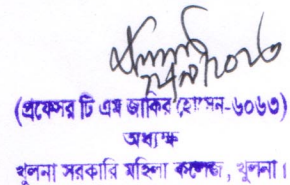 (প্রফেসর টি এম জাকির হোসেন-৬০৬৩)
অধ্যক্ষ
খুলনা সরকারি মহিলা কলেজ, খুলনা।